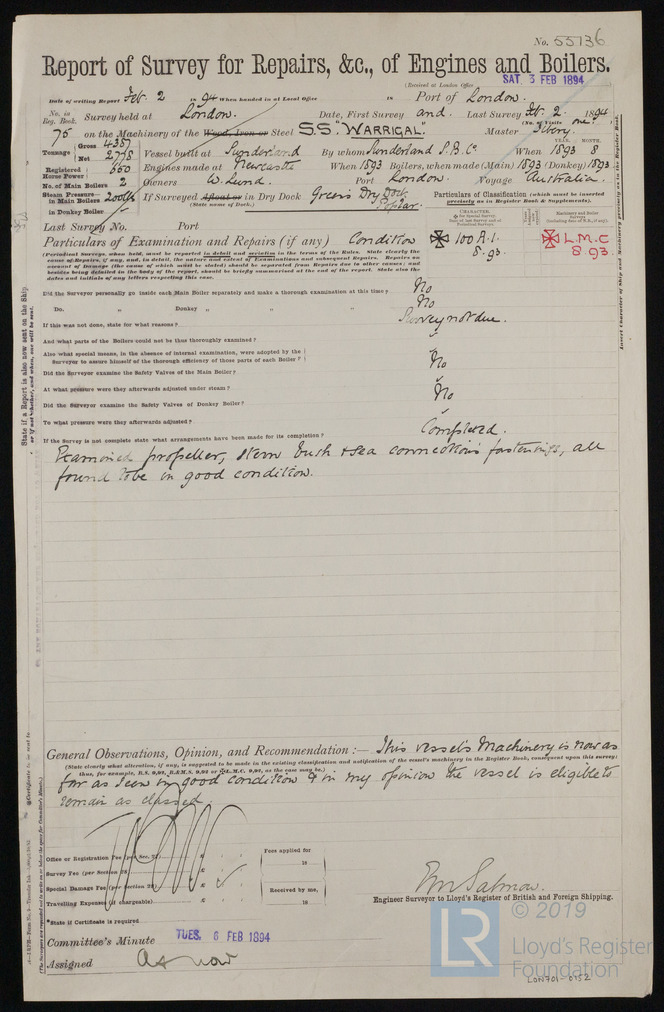 No. 55136
Report of Survey for Repairs, &c., of Engines and Boilers.
(Received at London Office SAT. 3 FEB 1894
Date of writing Report Feb. 2 1894 When handed in at Local Office 18 Port of London.
No. in Reg. Book. Survey held at London. Date, First Survey and Last Survey Feb. 2. 1894
(No. of Visits one)
75 on the Machinery of the Wood, Iron or Steel S.S. "WARRIGAL. Master
Tonnage Gross 4387 Net 2778 Vessel built at Sunderland By whom Sunderland S.B. Co When 1893 8
YEAR. MONTH.
Registered Horse Power 560 Engines made at Newcastle When 1893 Boilers, when made (Main) 1893 (Donkey) 1893
No. of Main Boilers 2 Owners W. Lund. Port London. Voyage Australia.
Steam Pressure in Main Boilers 200lb If Surveyed Afloat or in Dry Dock Green's Dry Dock Poplar.
(State name of Dock.)
in Donkey Boiler
Particulars of Classification (which must be inserted precisely as in Register Book & Supplements).
Last Survey No. Port
Particulars of Examination and Repairs (if any) Condition
100 A.1. 8.93
L.M.C 8.93.
(Periodical Surveys, when held, must be reported in detail and seriatim in the terms of the Rules. State clearly the
cause of Repairs, if any, and, in detail, the nature and extent of Examinations and subsequent Repairs. Repairs on
account of Damage (the cause of which must be stated) should be separated from Repairs due to other causes; and
besides being detailed in the body of the report, should be briefly summarised at the end of the report. State also the
dates and initials of any letters respecting this case.
Did the Surveyor personally go inside each Main Boiler separately and make a thorough examination at this time? No
Do. " Donkey " " " No
If this was not done, state for what reasons? Survey not due.
And what parts of the Boilers could not be thus thoroughly examined?
Also what special means, in the absence of internal examination, were adopted by the
Surveyor to assure himself of the thorough efficiency of those parts of each Boiler?
Did the Surveyor examine the Safety Valves of the Main Boiler? No
At what pressure were they afterwards adjusted under steam?
Did the Surveyor examine the Safety Valves of Donkey Boiler? No
To what pressure were they afterwards adjusted?
If the Survey is not complete state what arrangements have been made for its completion? Completed.
Examined propeller, stern bush & sea connections fastenings, all
found to be in good condition.
General Observations, Opinion, and Recommendation :— This vessel's Machinery is now as
(State clearly what alteration, if any, is suggested to be made in the existing classification and notification of the vessel's machinery in the Register Book, consequent upon this survey;
thus, for example, B.S. 9,92, B.&M.S. 9,92 or L.M.C. 9,92, as the case may be.)
far as seen in good condition & in my opinion the vessel is eligible to
remain as classed
Office or Registration Fee (per Sec. 28) £
Fees applied for 18
Survey Fee (per Section 28) £
Special Damage Fee (per Section 28) £
Received by me, 18
Travelling Expenses (if chargeable) £
Engineer Surveyor to Lloyd's Register of British and Foreign Shipping.
*State if Certificate is required
Committee's Minute TUES. 6 FEB 1894
Assigned As now
LR
© 2019
Lloyd's Register
Foundation
LON701-0152